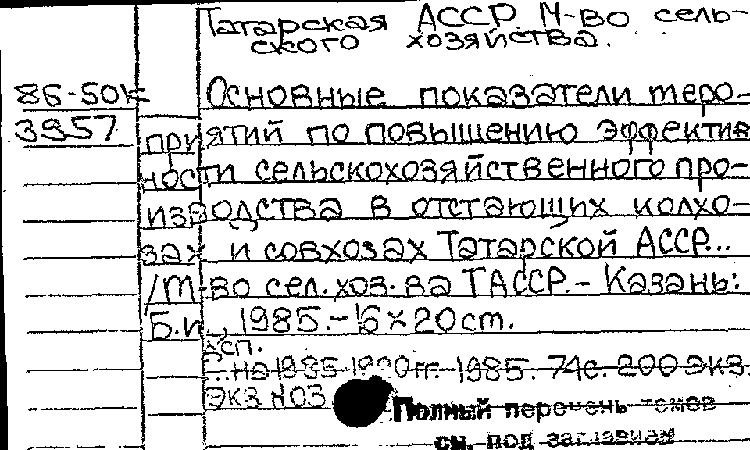 Татарская АССР. М-во сель-
ского хозяйства.
86-50к Основные показатели меро-
3957 приятий по повышению эффектив
ности сельскохозяйственного про-
изводства в отстающих колхо-
зах и совхозах Татарской АССР...
/М-во сел. хоз-ва ТАССР.- Казань:
Б.и., 1985.- 16×20см.
...на 1985-1990гг. 1985. 74с. 200 экз.
экз. №03
Полный перечень томов
см. под заглавием